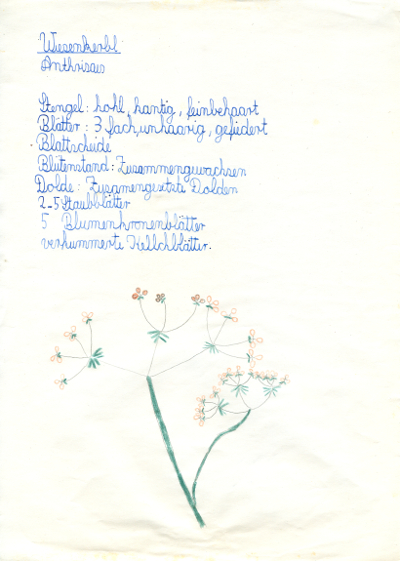 Wiesenkerbl
Anthriscus
Stengel: hohl, kantig, feinbehaart
Blätter: 3 fach, unhaarig, gefiedert
Blattscheide
Blütenstand: Zusammengewachsen
Dolde: Zusamengesetzte Dolden
2-5 Staubblätter
5 Blumenkronenblätter
verkummerte Kellchblätter.